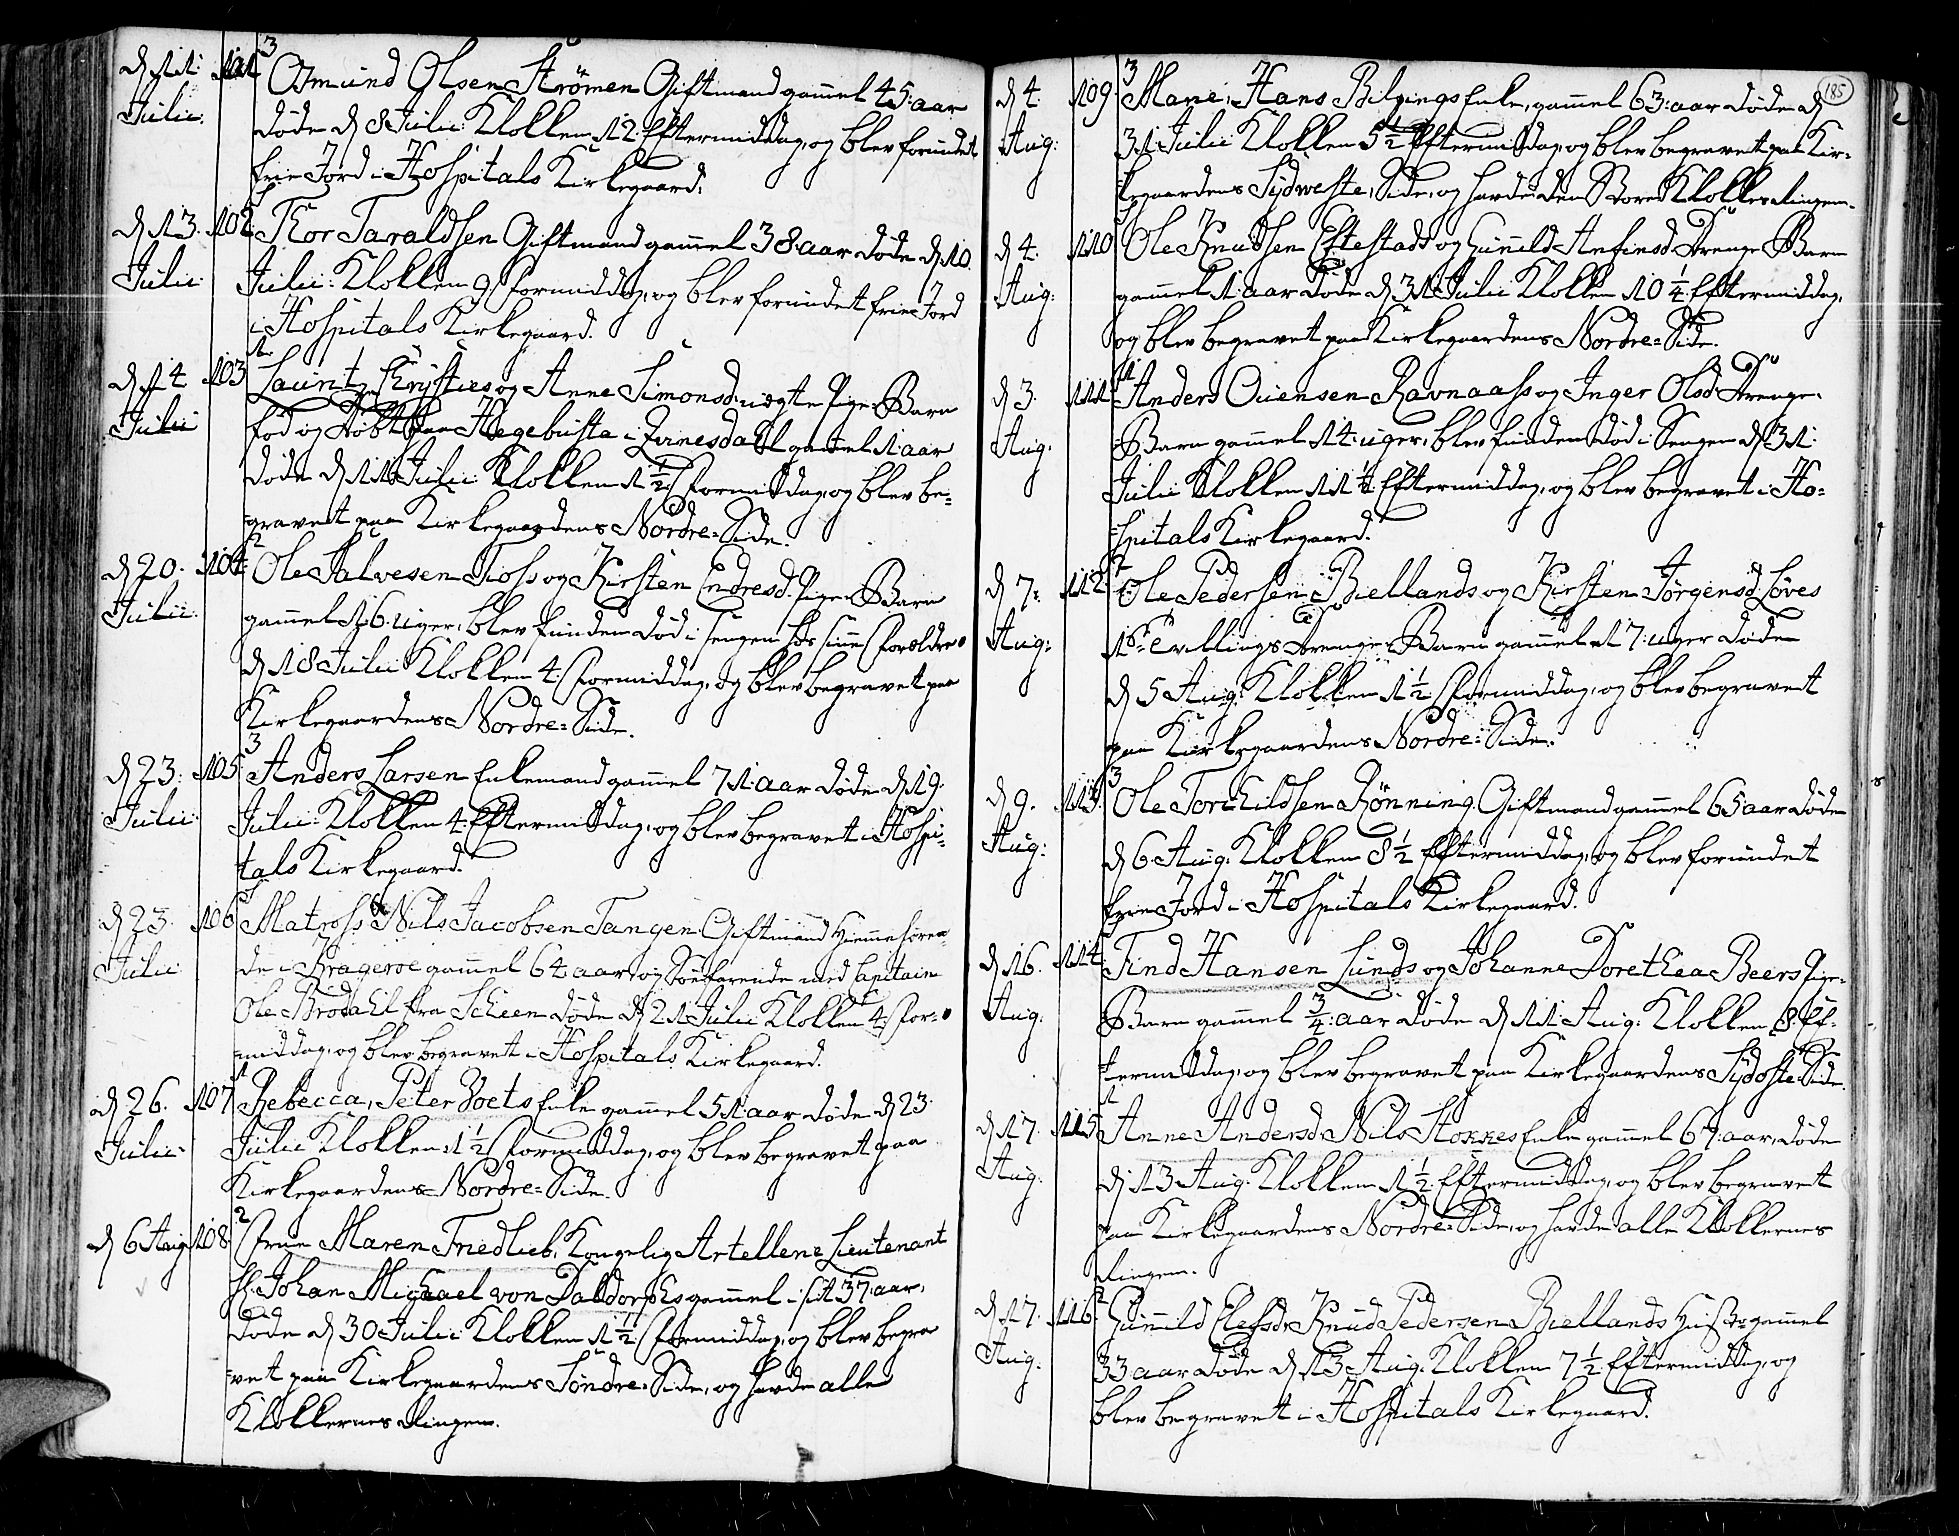 d 11: 101 3 Osmund Olsen Strömen Giftmand gamel 45: aar
Julii: döde d 8 Julii Klokken 12 Eftermiddag, og blev forundet
frie Jord i Hospitals Kirkegaard.
d 13: 102 Thor Taraldsen Giftmand gamel 38: aar döde d 10
Julii: Julii: Klokken 9 Formiddag, og blev forundet frie Jord
i Hospitals Kirkegaard.
d 14 103 1 Lauritz Christies og Anne Simonsd: uægte Pige-Barn
Julii föd og döbt paa Hegebusta i Qvinesdahl gamel 1: aar
döde d 11 Julii Klokken 1 1/2 Formiddag, og blev be-
gravet paa Kirkegaardens Nordre-Side.
d 20. 104 2 Ole Salvesen Toss og Kirsten Endresd: Pige-Barn
Julii: gamel 16. uger, blev funden död i Sengen hos sine Forældre
d 18 Julii Klokken 4: Formiddag, og blev begravet paa
Kirkegaardens Nordre-Side.
d 23: 105 3 Anders Larsen Enkemand gamel 71: aar döde d 19:
Julii: Julii: Klokken 4: Eftermiddag, og blev begravet i Hospi-
tals Kirkegaard.
d 23. 106 Matross Nils Jacobsen Tangen Giftmand Hiemmehören-
Julii de i Krageröe gamel 64 aar og Söefarende med Capitain
Ole Brodahl fra Scheen döde d 21 Julii Klokken 4: For-
middag, og blev begravet i Hospitals Kirkegaard.
d 26. 107 1 Rebecca, Peter Boets Enke gamel 51: aar döde d 23:
Julii: Julii Klokken 1 1/2 Formiddag, og blev begravet paa
Kirkegaardens Nordre-Side.
d 6 Aug 108 2 Frue Maren Friedlieb, Kongelig Artellerie Lieutenant
Hr: Johan Michael von Daldorphs gamel i sit 37: aar,
döde d 30 Julii Klokken 1 1/2 Formiddag, og blev begra-
vet paa Kirkegaardens Söndre-Side, og havde alle
Klokkernes Ringen.
185
d 4. 109 3 Marie, Hans Bilzings Enke, gamel 63: aar döde d
Aug: 31 Julii Klokken 5 1/2 Eftermiddag, og blev begravet paa Kir-
kegaardens Sydweste-Side, og havde den Store Klokkes Ringen.
d 4. 110 Ole Knudsen Eftestads og Gunild Anfinsd: Drenge-Barn
Aug: gamel 1: aar döde d 31 Julii Klokken 10 1/4: Eftermiddag,
og blev begravet paa Kirkegaardens Nordre-Side.
d 3. 111 1 Anders Ouensen Ravnaass og Inger Olsd: Drenge-
Aug: Barn gamel 14: uger, blev funden död i Sengen d 31:
Julii Klokken 11 1/2 Eftermiddag, og blev begravet i Ho-
spitals Kirkegaard.
d 7: 112 Ole Pedersen Biellands og Kirsten Jörgensd: Löves
Aug: Tvillings Drenge-Barn gamel 17: uger döde
d 5 Aug: Klokken 1 1/2 Formiddag, og blev begravet
paa Kirkegaardens Nordre-Side.
d 9. 113 3 Ole Torchildsen Rönning Giftmand gamel 65 aar döde
Aug: d 6 Aug: Klokken 8 1/2 Eftermiddag, og blev forundet
frie Jord i Hospitals Kirkegaard.
d 16. 114 Find Hansen Lunds og Johanne Dorethea Beers Pige-
Aug: Barn gamel 3/4: aar döde d 11: Aug: Klokken 8: Ef-
termiddag, og blev begravet paa Kirkegaardens Sydoste-Side.
d 17. 115 1 Anne Andersd: Nils Stokkes Enke gamel 67: aar, döde
Aug: d 13 Aug: Klokken 1 1/2: Eftermiddag, og blev begravet
paa Kirkegaardens Nordre-Side, og havde alle Klokkernes
Ringen.
d 17. 116 2 Gunild Elefsd: Knud Pedersen Biellands Hustr: gamel
Aug. 33 aar döde d 13 Aug: Klokken 7 1/2: Eftermiddag, og
blev begravet i Hospitals Kirkegaard.